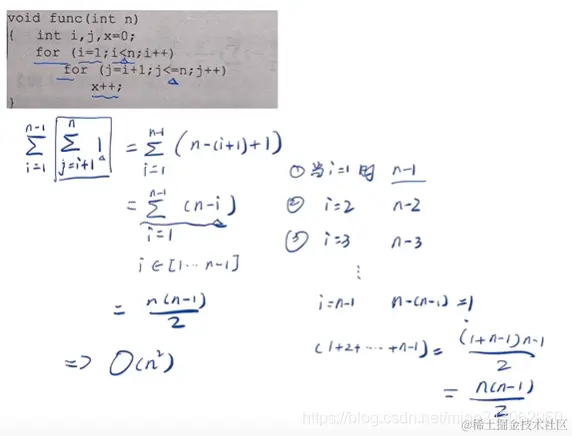 void func(int n)
{ int i,j,x=0;
for (i=1;i<n;i++)
for (j=i+1;j<=n;j++)
x++;
}
∑_{i=1}^{n-1} ∑_{j=i+1}^{n} 1 = ∑_{i=1}^{n-1} (n-(i+1)+1)
= ∑_{i=1}^{n-1} (n-i)
i∈[1…n-1]
= n(n-1)/2
=> O(n²)
① 当i=1时 n-1
② i=2 n-2
③ i=3 n-3
⋮
i=n-1 n-(n-1)=1
(1+2+…+n-1) = (1+n-1)n-1/2
= n(n-1)/2
@稀土掘金技术社区